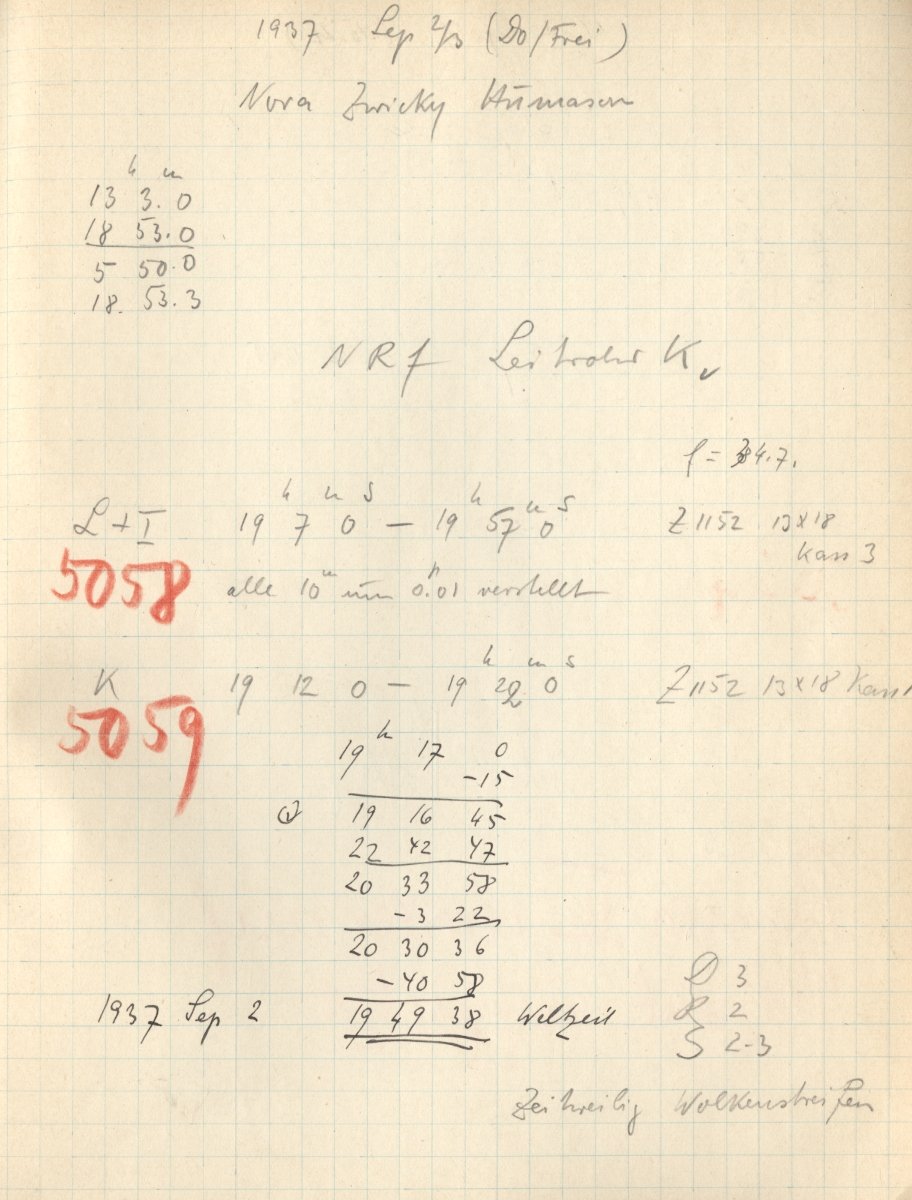 1937 Sep 2/3 (Do/Frei)
Nova Zwicky Humason
h m
13 3.0
18 53.0
5 50.0
18. 53.3
NRf Leitrohr K
f = 34.7.
h m s h m s
L + I 19 7 0 — 19 57 0 Z 1152 13x18
Kass 3
5058 alle 10m um 0.01 verstellt
h m s
K 19 12 0 — 19 22 0 Z 1152 13x18 Kass 1
5059
19h 17 0
-15
19 16 45
22 42 47
20 33 58
-3 22
20 30 36
-40 58
1937 Sep 2 19 49 38 Weltzeit
D 3
R 2
S 2-3
Zeitweilig Wolkenstreifen